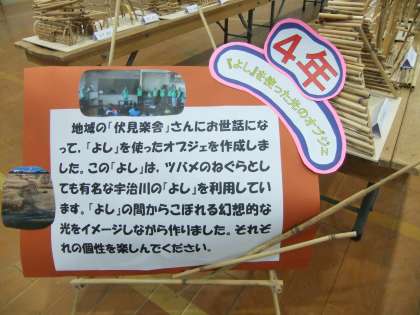 4年
『よし』を使った光のオブジェ
地域の「伏見楽舎」さんにお世話にな
って、「よし」を使ったオブジェを作成しま
した。この「よし」は、ツバメのねぐらとし
ても有名な宇治川の「よし」を利用してい
ます。「よし」の間からこぼれる幻想的な
光をイメージしながら作りました。それぞ
れの個性を楽しんでください。